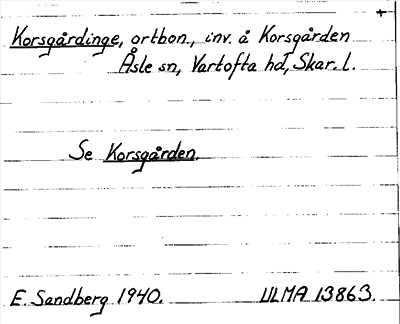 +
Korsgårdinge, ortbon., inv. å Korsgården
Åsle sn, Vartofta hd, Skar. l.
Se Korsgården.
E. Sandberg 1940. ULMA 13863.